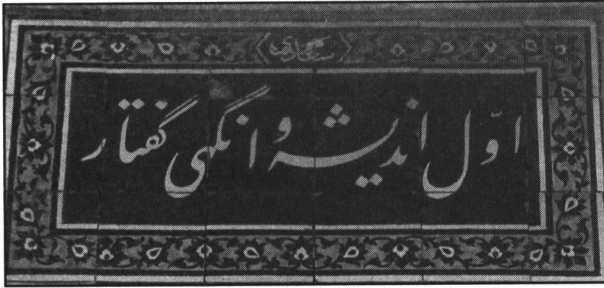 سعدی
اوّل اندیشه و انگهی گفتار